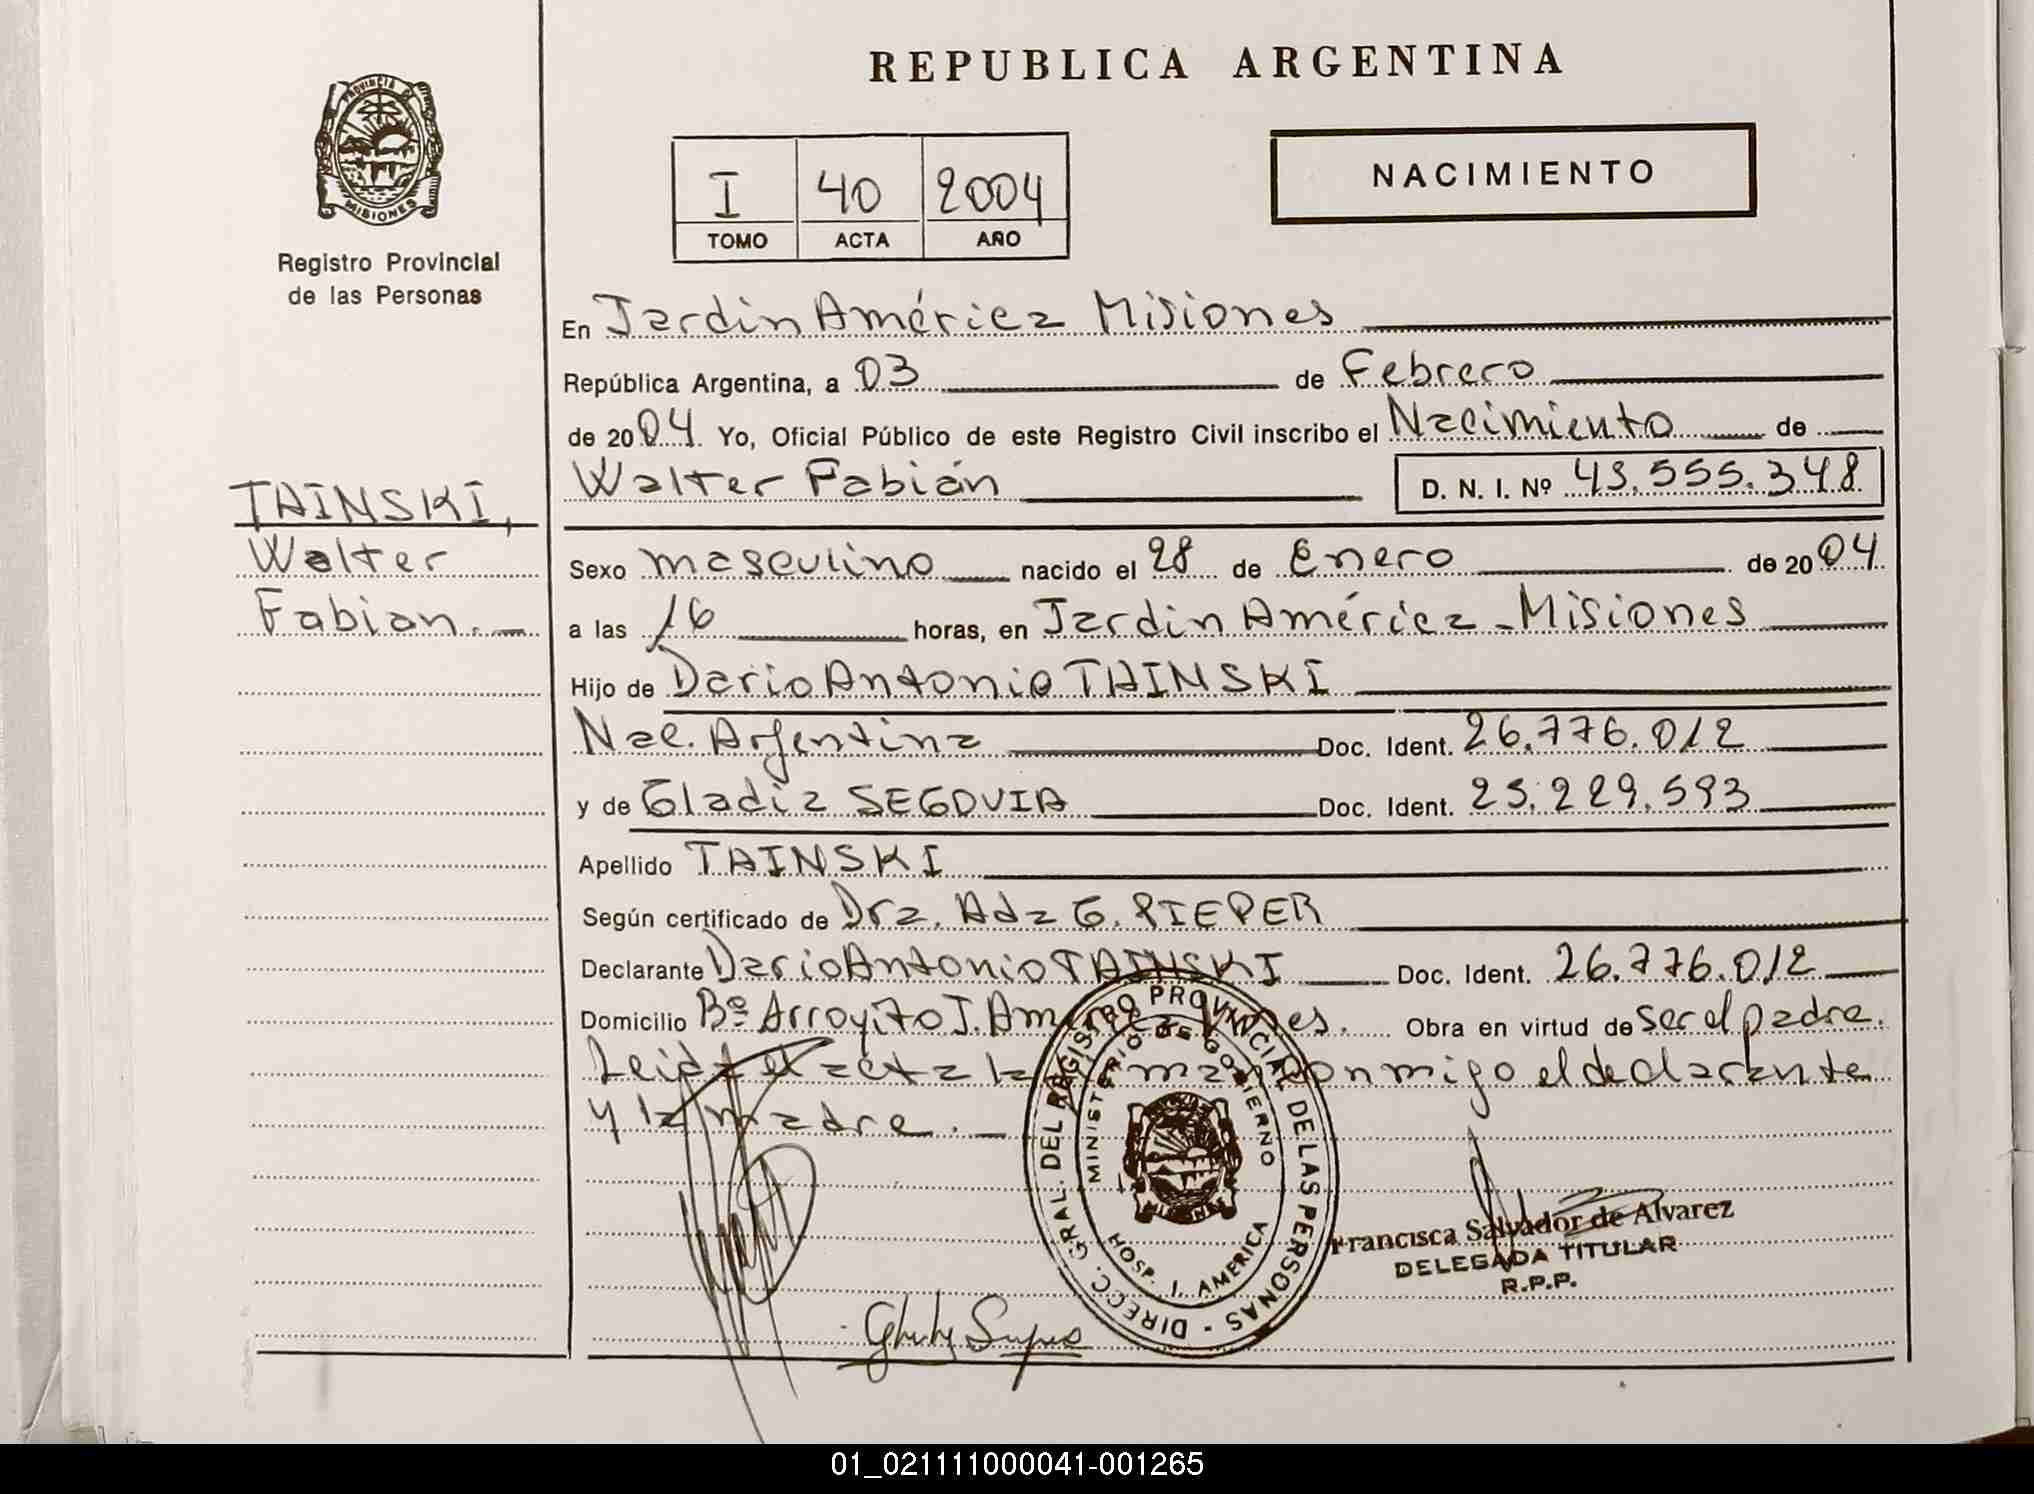 REPUBLICA ARGENTINA
PROVINCIA DE
MISIONES
Registro Provincial
de las Personas
NACIMIENTO
I 40 2004
TOMO ACTA AÑO
En Jardin América Misiones
República Argentina, a 03 de Febrero
de 2004. Yo, Oficial Público de este Registro Civil inscribo el Nacimiento de
Walter Fabián D. N. I. Nº 43.555.348
TAINSKI,
Walter
Fabian.
Sexo masculino nacido el 28 de Enero de 2004
a las 16 horas, en Jardin América - Misiones
Hijo de Dario Antonio TAINSKI
Nac. Argentina Doc. Ident. 26.776.012
y de Gladiz SEGOVIA Doc. Ident. 25.229.593
Apellido TAINSKI
Según certificado de Dra. Ada G. PIEPER
Declarante Dario Antonio TAINSKI Doc. Ident. 26.776.012
Domicilio Bº Arroyito J. América Mnes. Obra en virtud de ser el padre.
Leida el acta la firman conmigo el declarante
y la madre.
DIRECC. GRAL. DEL REGISTRO PROVINCIAL DE LAS PERSONAS -
MINISTERIO DE GOBIERNO
HOSP. J. AMERICA
Francisca Salvador de Alvarez
DELEGADA TITULAR
R.P.P.
01_021111000041-001265